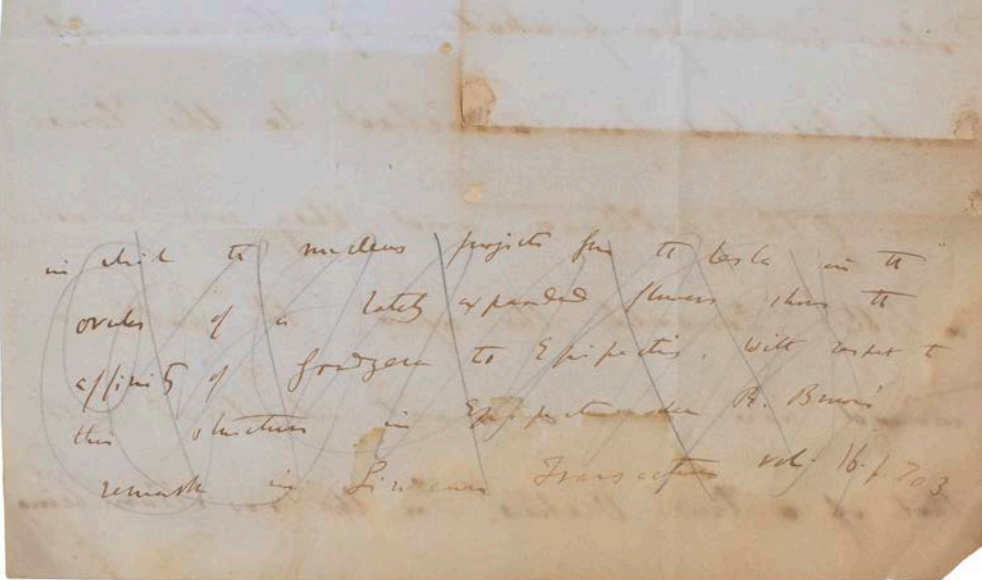 in which the nucleus projects from the testa in the
ovules of a lately expanded flowers shows the
affinity of Goodyera to Epipactis. With respect to
this structure in Epipactis see R. Brown's
remark in Linnean Transactions vol. 16. p. 703